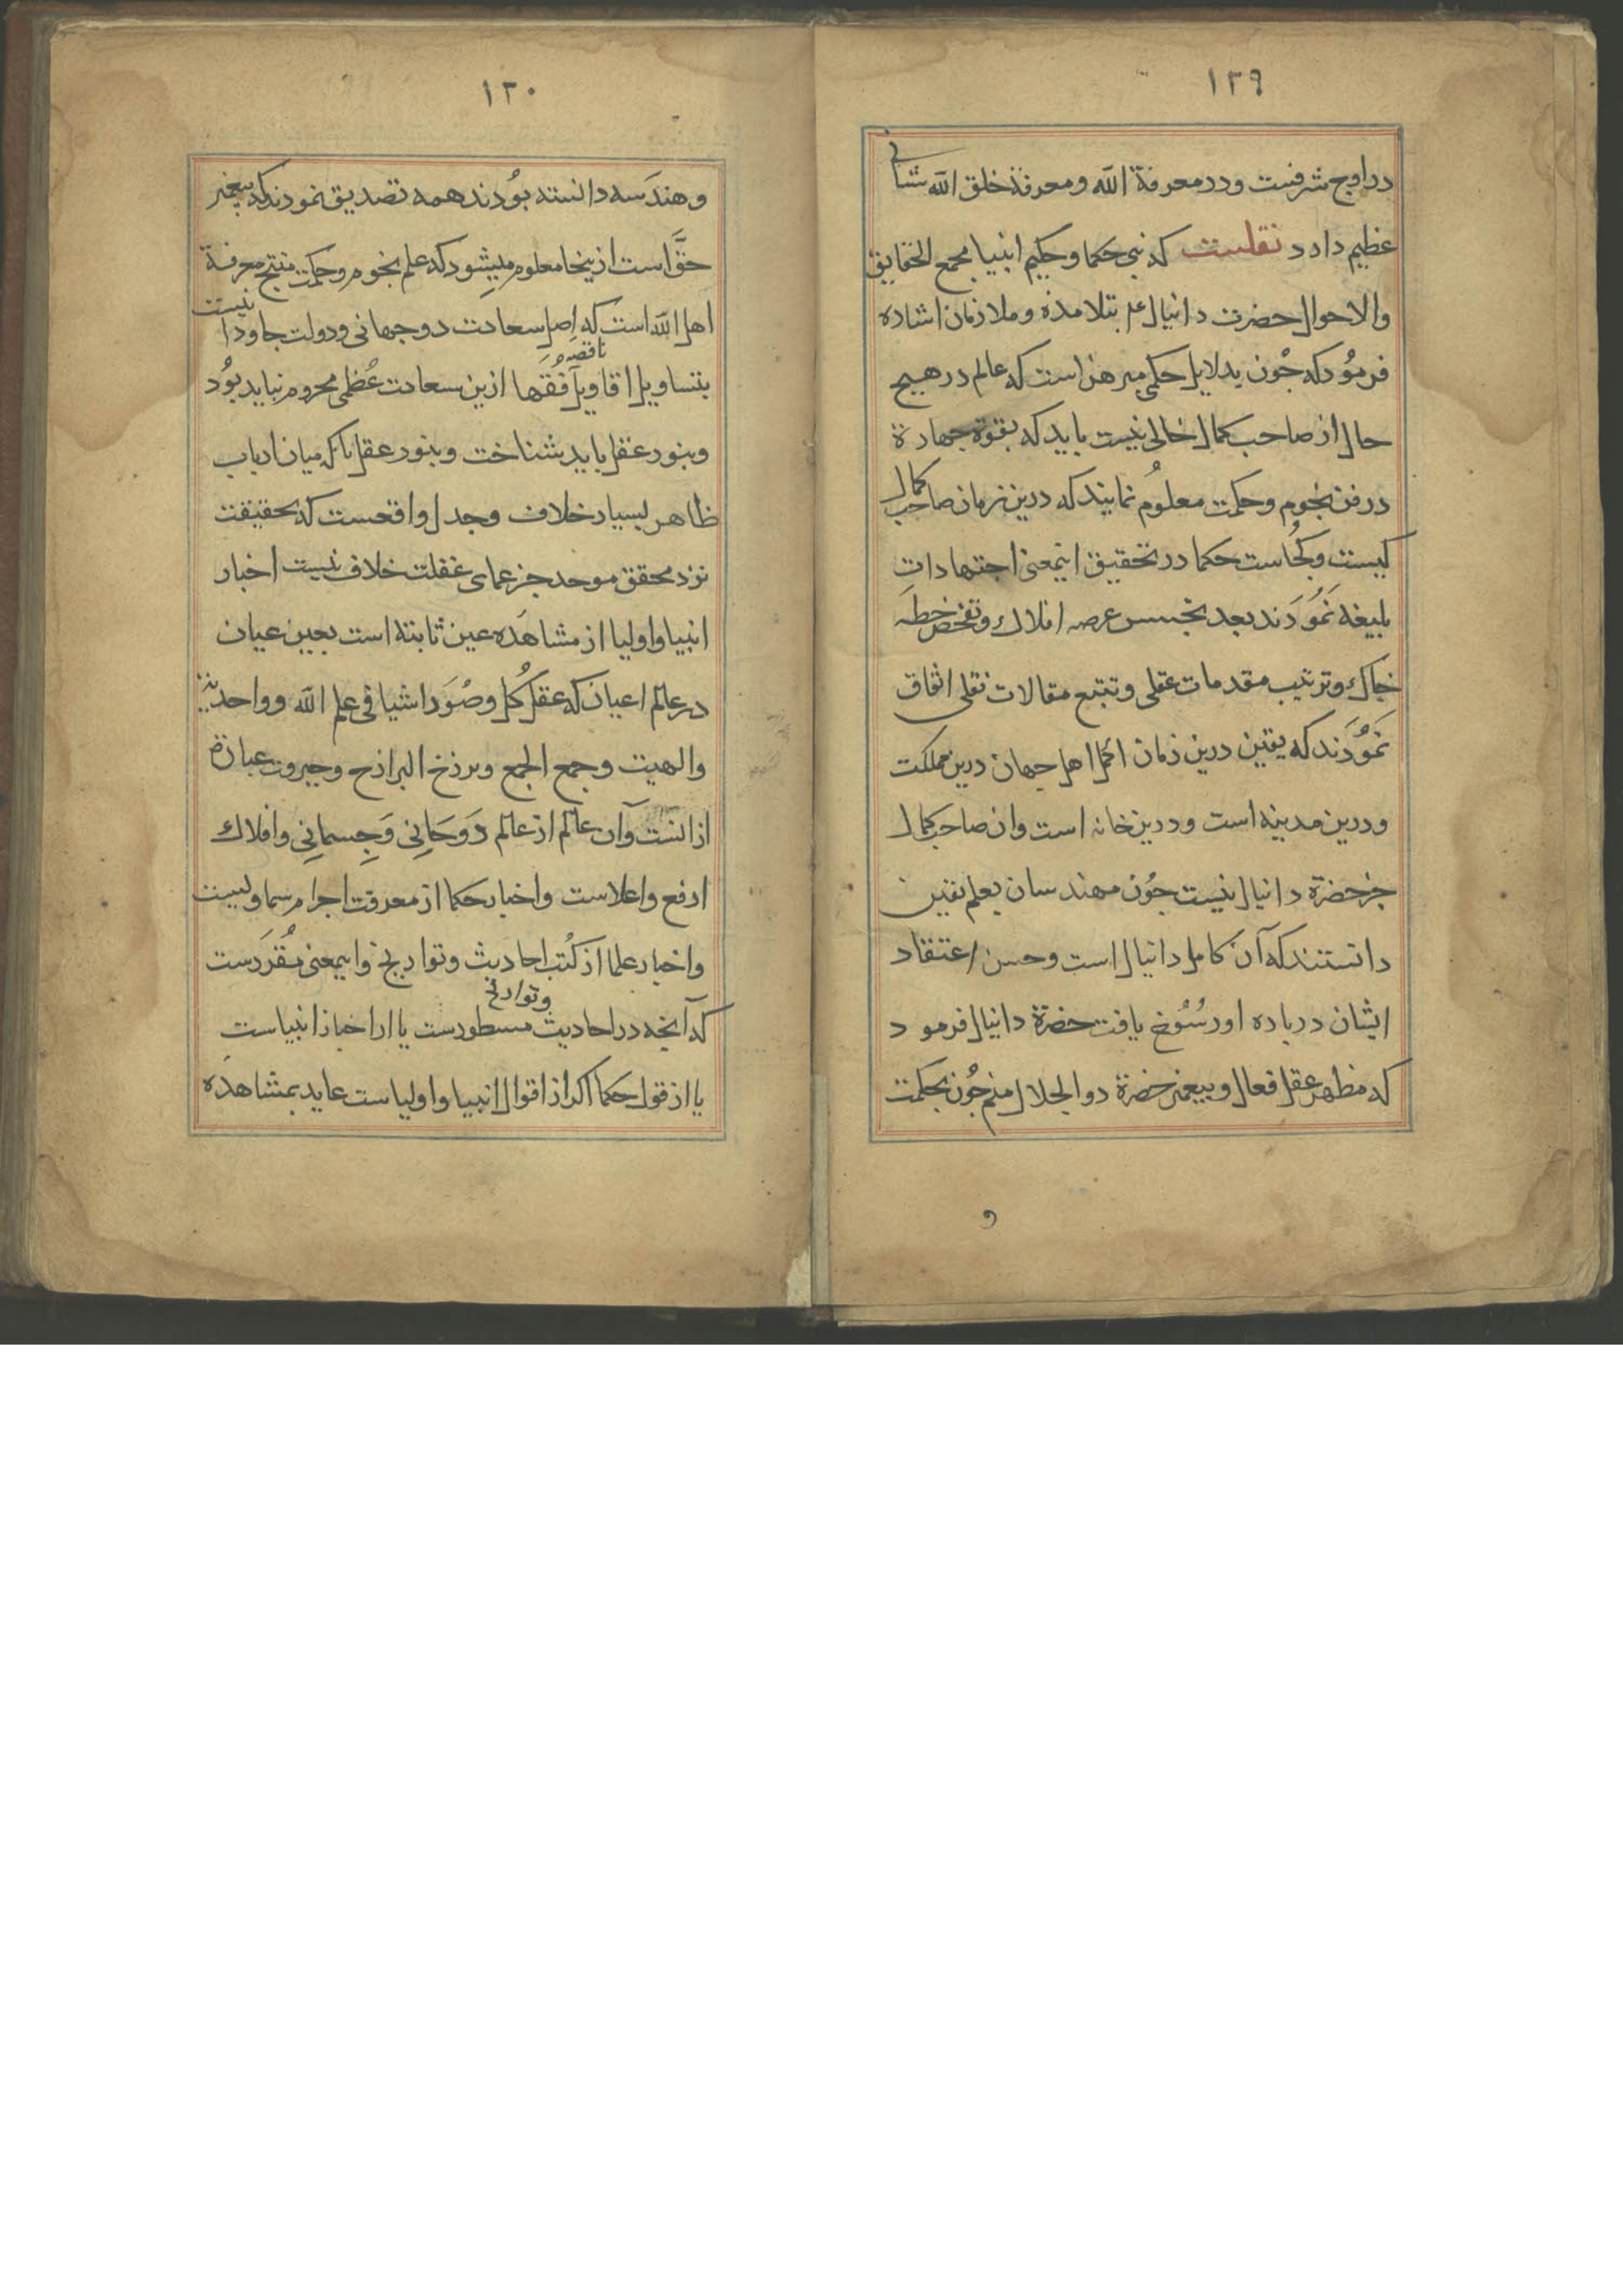 ١٢٩
در اوج شرفست ودر معرفة الله ومعرفة خلق الله شانی
عظیم دارد نقلست که نبی حکما وحکیم انبیا مجمع الحقایق
والاحوال حضرت دانیال علم بتلامذه وملازمان اشاره
فرمُود که جُون بدلایل حکمی مبرهن است که عالم در هیچ
حال از صاحب کمال خالی نیست باید که بقوة جهارة
در فن نجوم وحکمت معلوُم نمایند که درین زمان صاحب کمال
کیست وکجُاست حکما در تحقیق اینمعنی اجتهادات
بلیغه نَموُدَند بعد تجسس عرصه افلاك وتفحص خطهٔ
خاك وترتیب مقدمات عقلی وتتبع مقالات نقلی اتفاق
نَموُدَند که یقین درین زمان اکمل اهل جهان درین مملکت
ودرین مدینه است ودرین خانه است وان صاحب کمال
جز حضرة دانیال نیست جوُن مهندسان بعلم یقین
دانستند که آن کامل دانیال است وحسن اعتقاد
ایشان درباره او رسُوُخ یافت حضرة دانیال فرمود
که مظهر عقل فعال وپیغمبر حضرة دوالجلال منم جوُن بحکمت
و
١٣٠
وهندَسه دانسته بوُدند همه تصدیق نمودند که پیغمبر
حقَّ است ازینجا معلوم میشود که علم نجوم وحکمت منتج معرفة
اهل الله است که اصل سعادت دوجهانی ودولت جاودانیست
بتساویل اقاویل ناقصهٔ فُقَها ازین سعادت عُظمی محروم نباید بوُد
وبنور عقل باید شناخت وبنور عقل باکه میان ارباب
ظاهر بسیار خلاف وجدل واقعست که بحقیقت
نزد محقق موحد جز عمای غفلت خلاف نیست اخبار
انبیا واولیا از مشاهَده عین ثابتة است بعین عیان
در عالم اعیان که عقل کُل وصُوَر اشیا فی علم الله وواحدیة
والهیت وجمع الجمع وبرزخ البرازح وجبروت عبارة
ازانست وآن عالم از عالم رَوحَانِی وَجِسمانِی وافلاك
ارفع واعلاست واخبار حکما از معرفت اجرام سماویست
واخبار علما از کُتب احادیث وتواریخ واینمعنی مُقرَرست
که آنچه در احادیث وتواریخ مسطورست یا از اخبار انبیاست
یا از قول حکما اکر از اقوال انبیا واولیاست عاید بمشاهَده